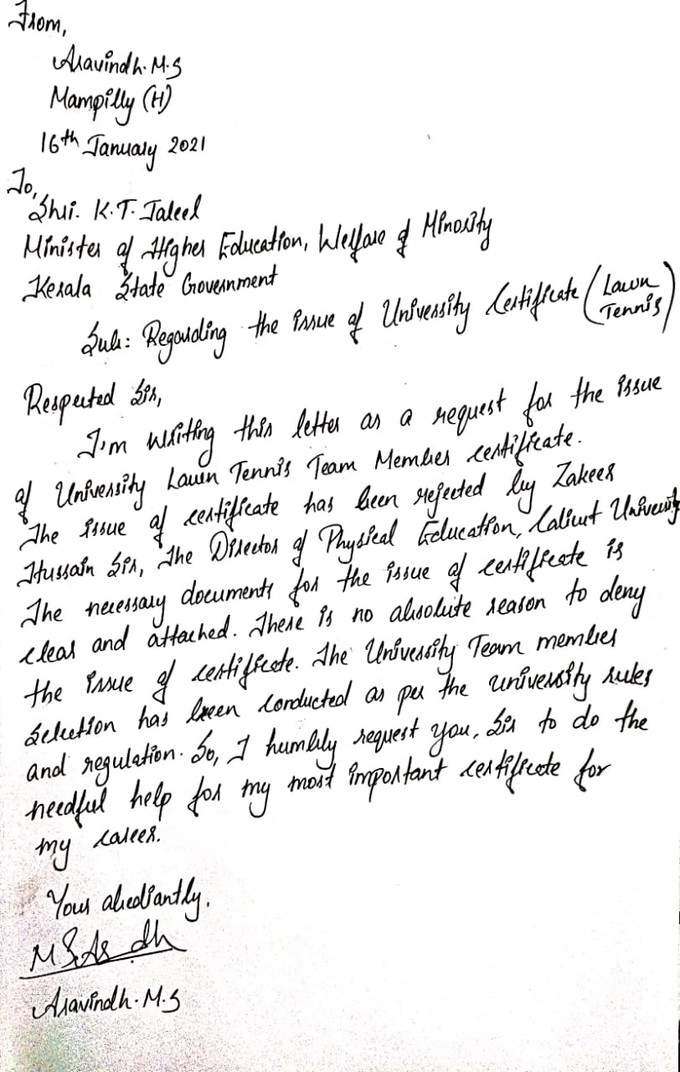 From,
Aravindh. M. S
Mampilly (H)
16th January 2021
To,
Shri. K. T. Jaleel
Minister of Higher Education, Welfare of Minority
Kerala State Government
Sub: Regarding the issue of University Certificate (Lawn Tennis)
Respected Sir,
I'm writing this letter as a request for the issue
of University Lawn Tennis Team Member certificate.
The issue of certificate has been rejected by Zakeer
Hussain Sir, The Director of Physical Education, Calicut University
The necessary documents for the issue of certificate is
clear and attached. There is no absolute reason to deny
the issue of certificate. The University Team member
Selection has been conducted as per the university rules
and regulation. So, I humbly request you, Sir to do the
needful help for my most important certificate for
my career.
Your abediantly,
Aravindh. M. S